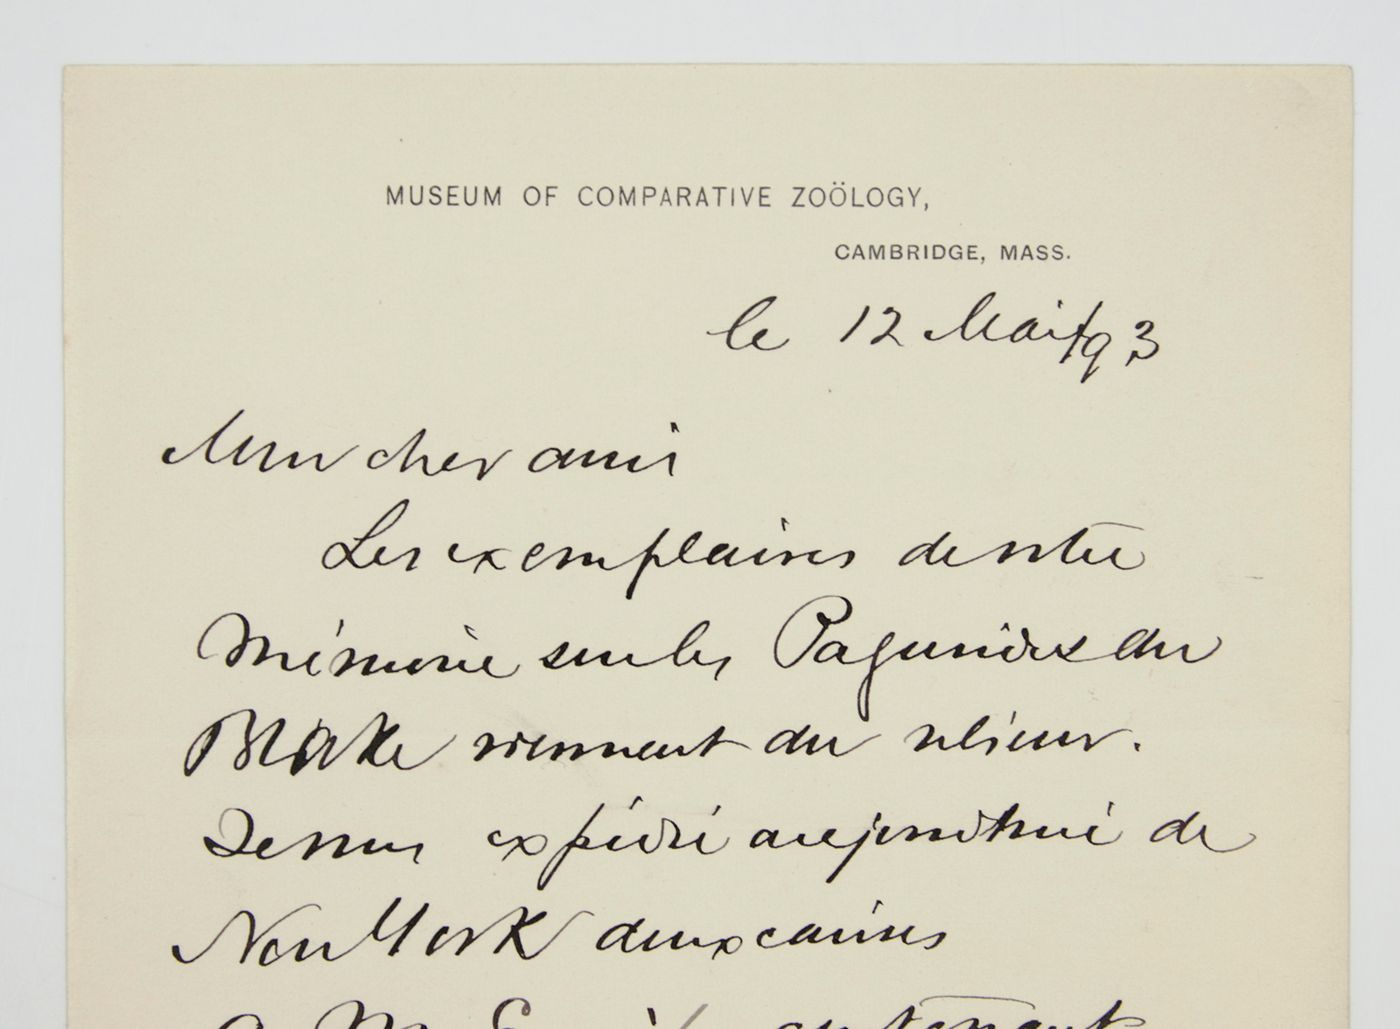 MUSEUM OF COMPARATIVE ZOÖLOGY,
CAMBRIDGE, MASS.
le 12 Mai/93
Mon cher ami
Les exemplaires de notre
Mémoire sur les Pagurides du
Blake viennent du relieur.
Je vous expédie aujourd'hui de
New York deux caisses
a M. contenant